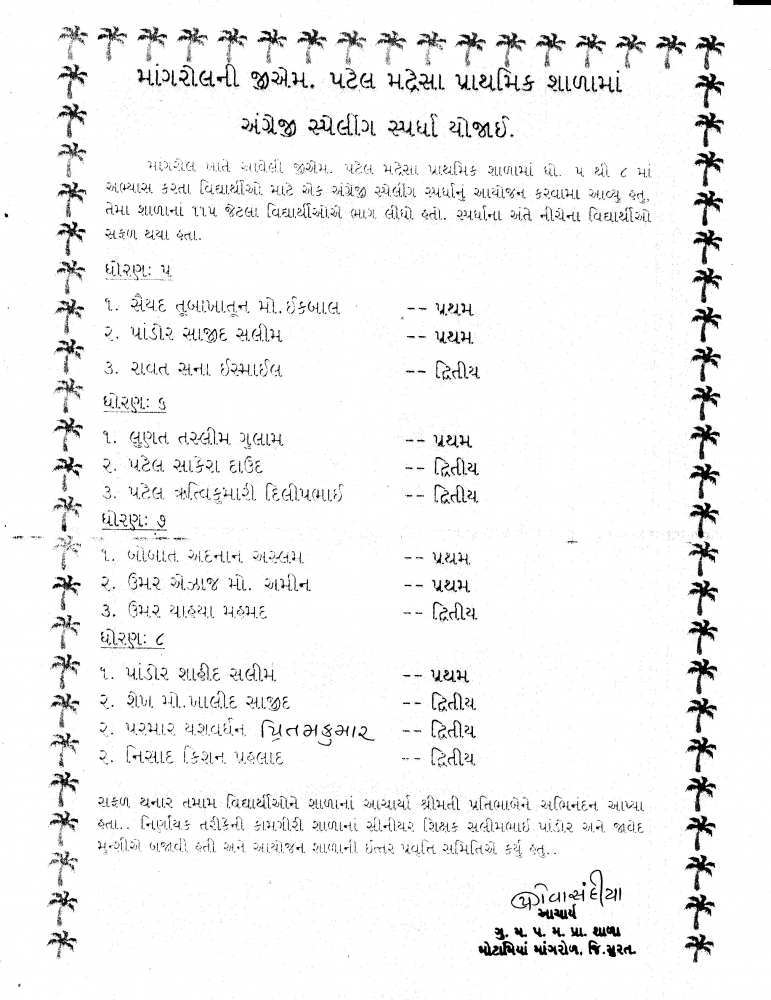 માંગરોલની જીએમ. પટેલ મદ્રેસા પ્રાથમિક શાળામાં
અંગ્રેજી સ્પેલીંગ સ્પર્ધા યોજાઈ.
માંગરોલ ખાતે આવેલી જીએમ. પટેલ મદ્રેસા પ્રાથમિક શાળામાં ધો. ૫ થી ૮ માં
અભ્યાસ કરતા વિદ્યાર્થીઓ માટે એક અંગ્રેજી સ્પેલીંગ સ્પર્ધાનું આયોજન કરવામા આવ્યુ હતુ,
તેમા શાળાનાં ૧૧૫ જેટલા વિદ્યાર્થીઓએ ભાગ લીધો હતો. સ્પર્ધાના અંતે નીચેના વિદ્યાર્થીઓ
સફળ થયા હતા.
ધોરણઃ ૫
૧. સૈયદ તૂબાખાતૂન મો.ઈકબાલ -- પ્રથમ
૨. પાંડોર સાજીદ સલીમ -- પ્રથમ
૩. રાવત સના ઈસ્માઈલ -- દ્વિતીય
ધોરણઃ ૬
૧. લુણત તસ્લીમ ગુલામ -- પ્રથમ
૨. પટેલ સાકેરા દાઉદ -- દ્વિતીય
૩. પટેલ ઋત્વિકુમારી દિલીપભાઈ -- દ્વિતીય
ધોરણઃ ૭
૧. બોબાત અદનાન અસ્લમ -- પ્રથમ
૨. ઉમર એઝાજ મો. અમીન -- પ્રથમ
૩. ઉમર યાહયા મહમદ -- દ્વિતીય
ધોરણઃ ૮
૧. પાંડોર શાહીદ સલીમ -- પ્રથમ
૨. શેખ મો.ખાલીદ સાજીદ -- દ્વિતીય
૨. પરમાર યશવર્ધન પ્રિતમકુમાર -- દ્વિતીય
૨. નિસાદ કિશન પ્રહલાદ -- દ્વિતીય
સફળ થનાર તમામ વિદ્યાર્થીઓને શાળાનાં આચાર્યા શ્રીમતી પ્રતિભાબેને અભિનંદન આપ્યા
હતા.. નિર્ણાયક તરીકેની કામગીરી શાળાનાં સીનીયર શિક્ષક સલીમભાઈ પાંડોર અને જાવેદ
મુન્શીએ બજાવી હતી અને આયોજન શાળાની ઈત્તર પ્રવૃત્તિ સમિતિએ કર્યુ હતુ..
આચાર્ય
ગુ. મ. પ. મ. પ્રા. શાળા
મોટામિયાં માંગરોળ, જિ.સુરત.